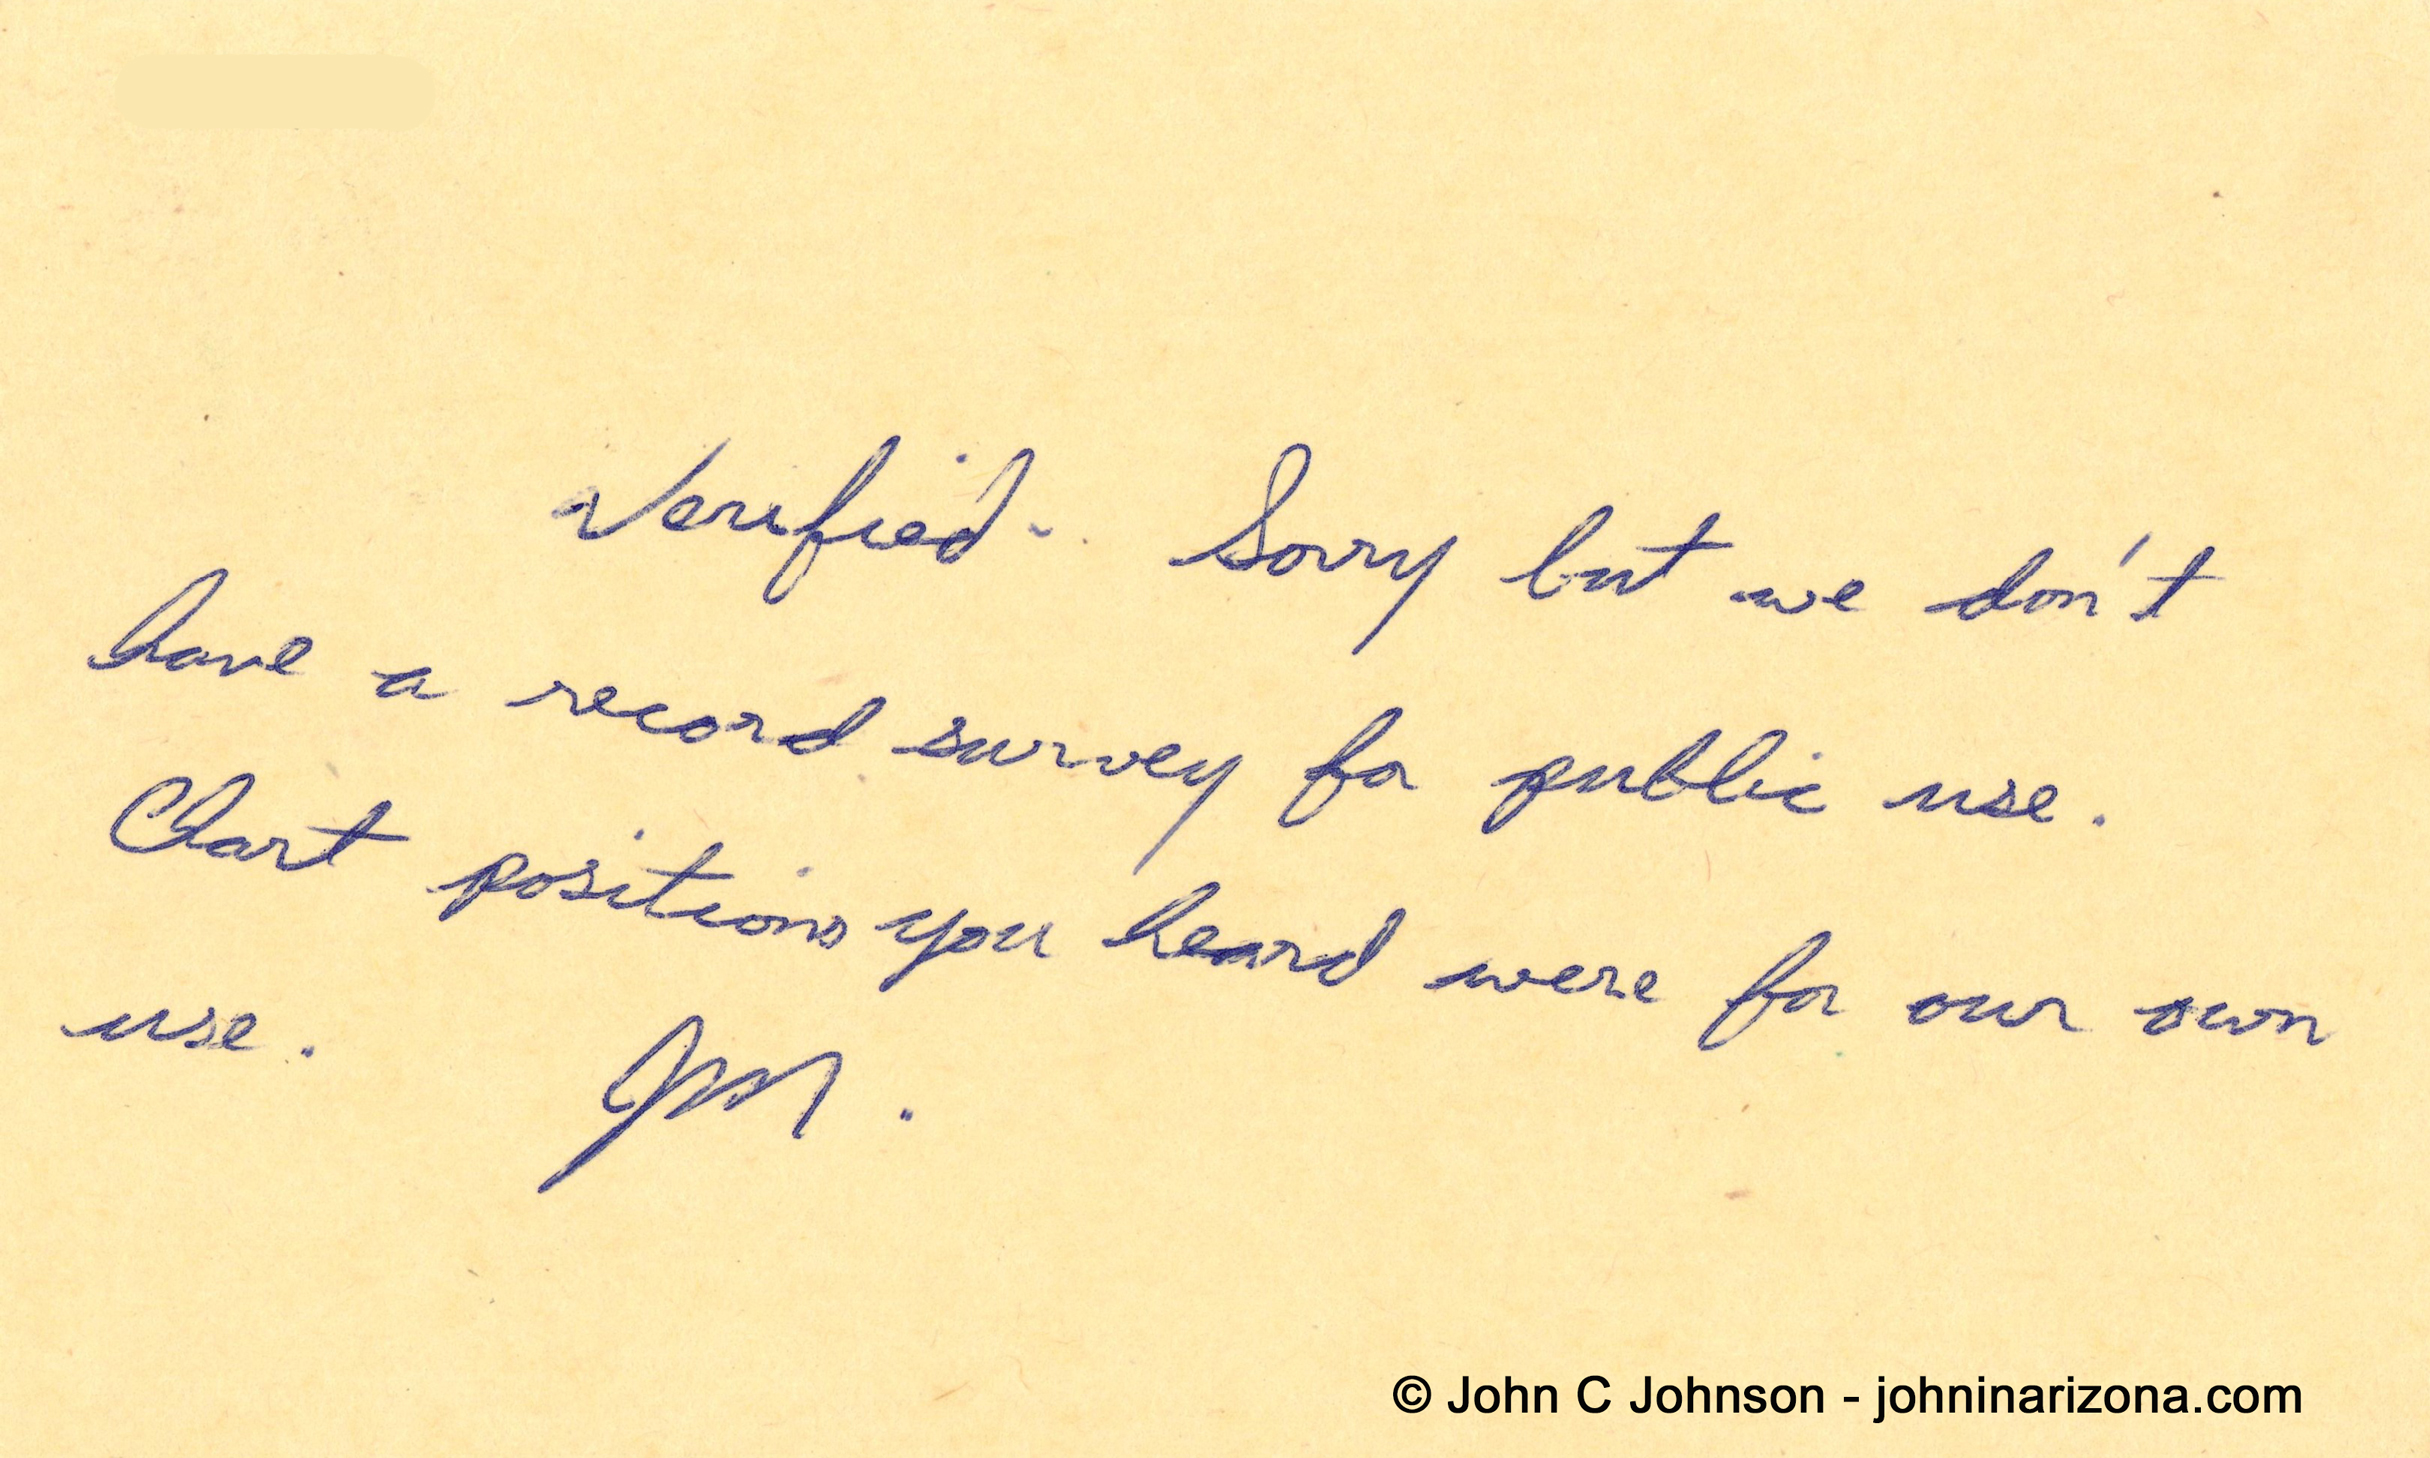 Verified - Sorry but we don't
have a record survey for public use.
Chart positions you heard were for our own
use. JM.
© John C Johnson - johninarizona.com